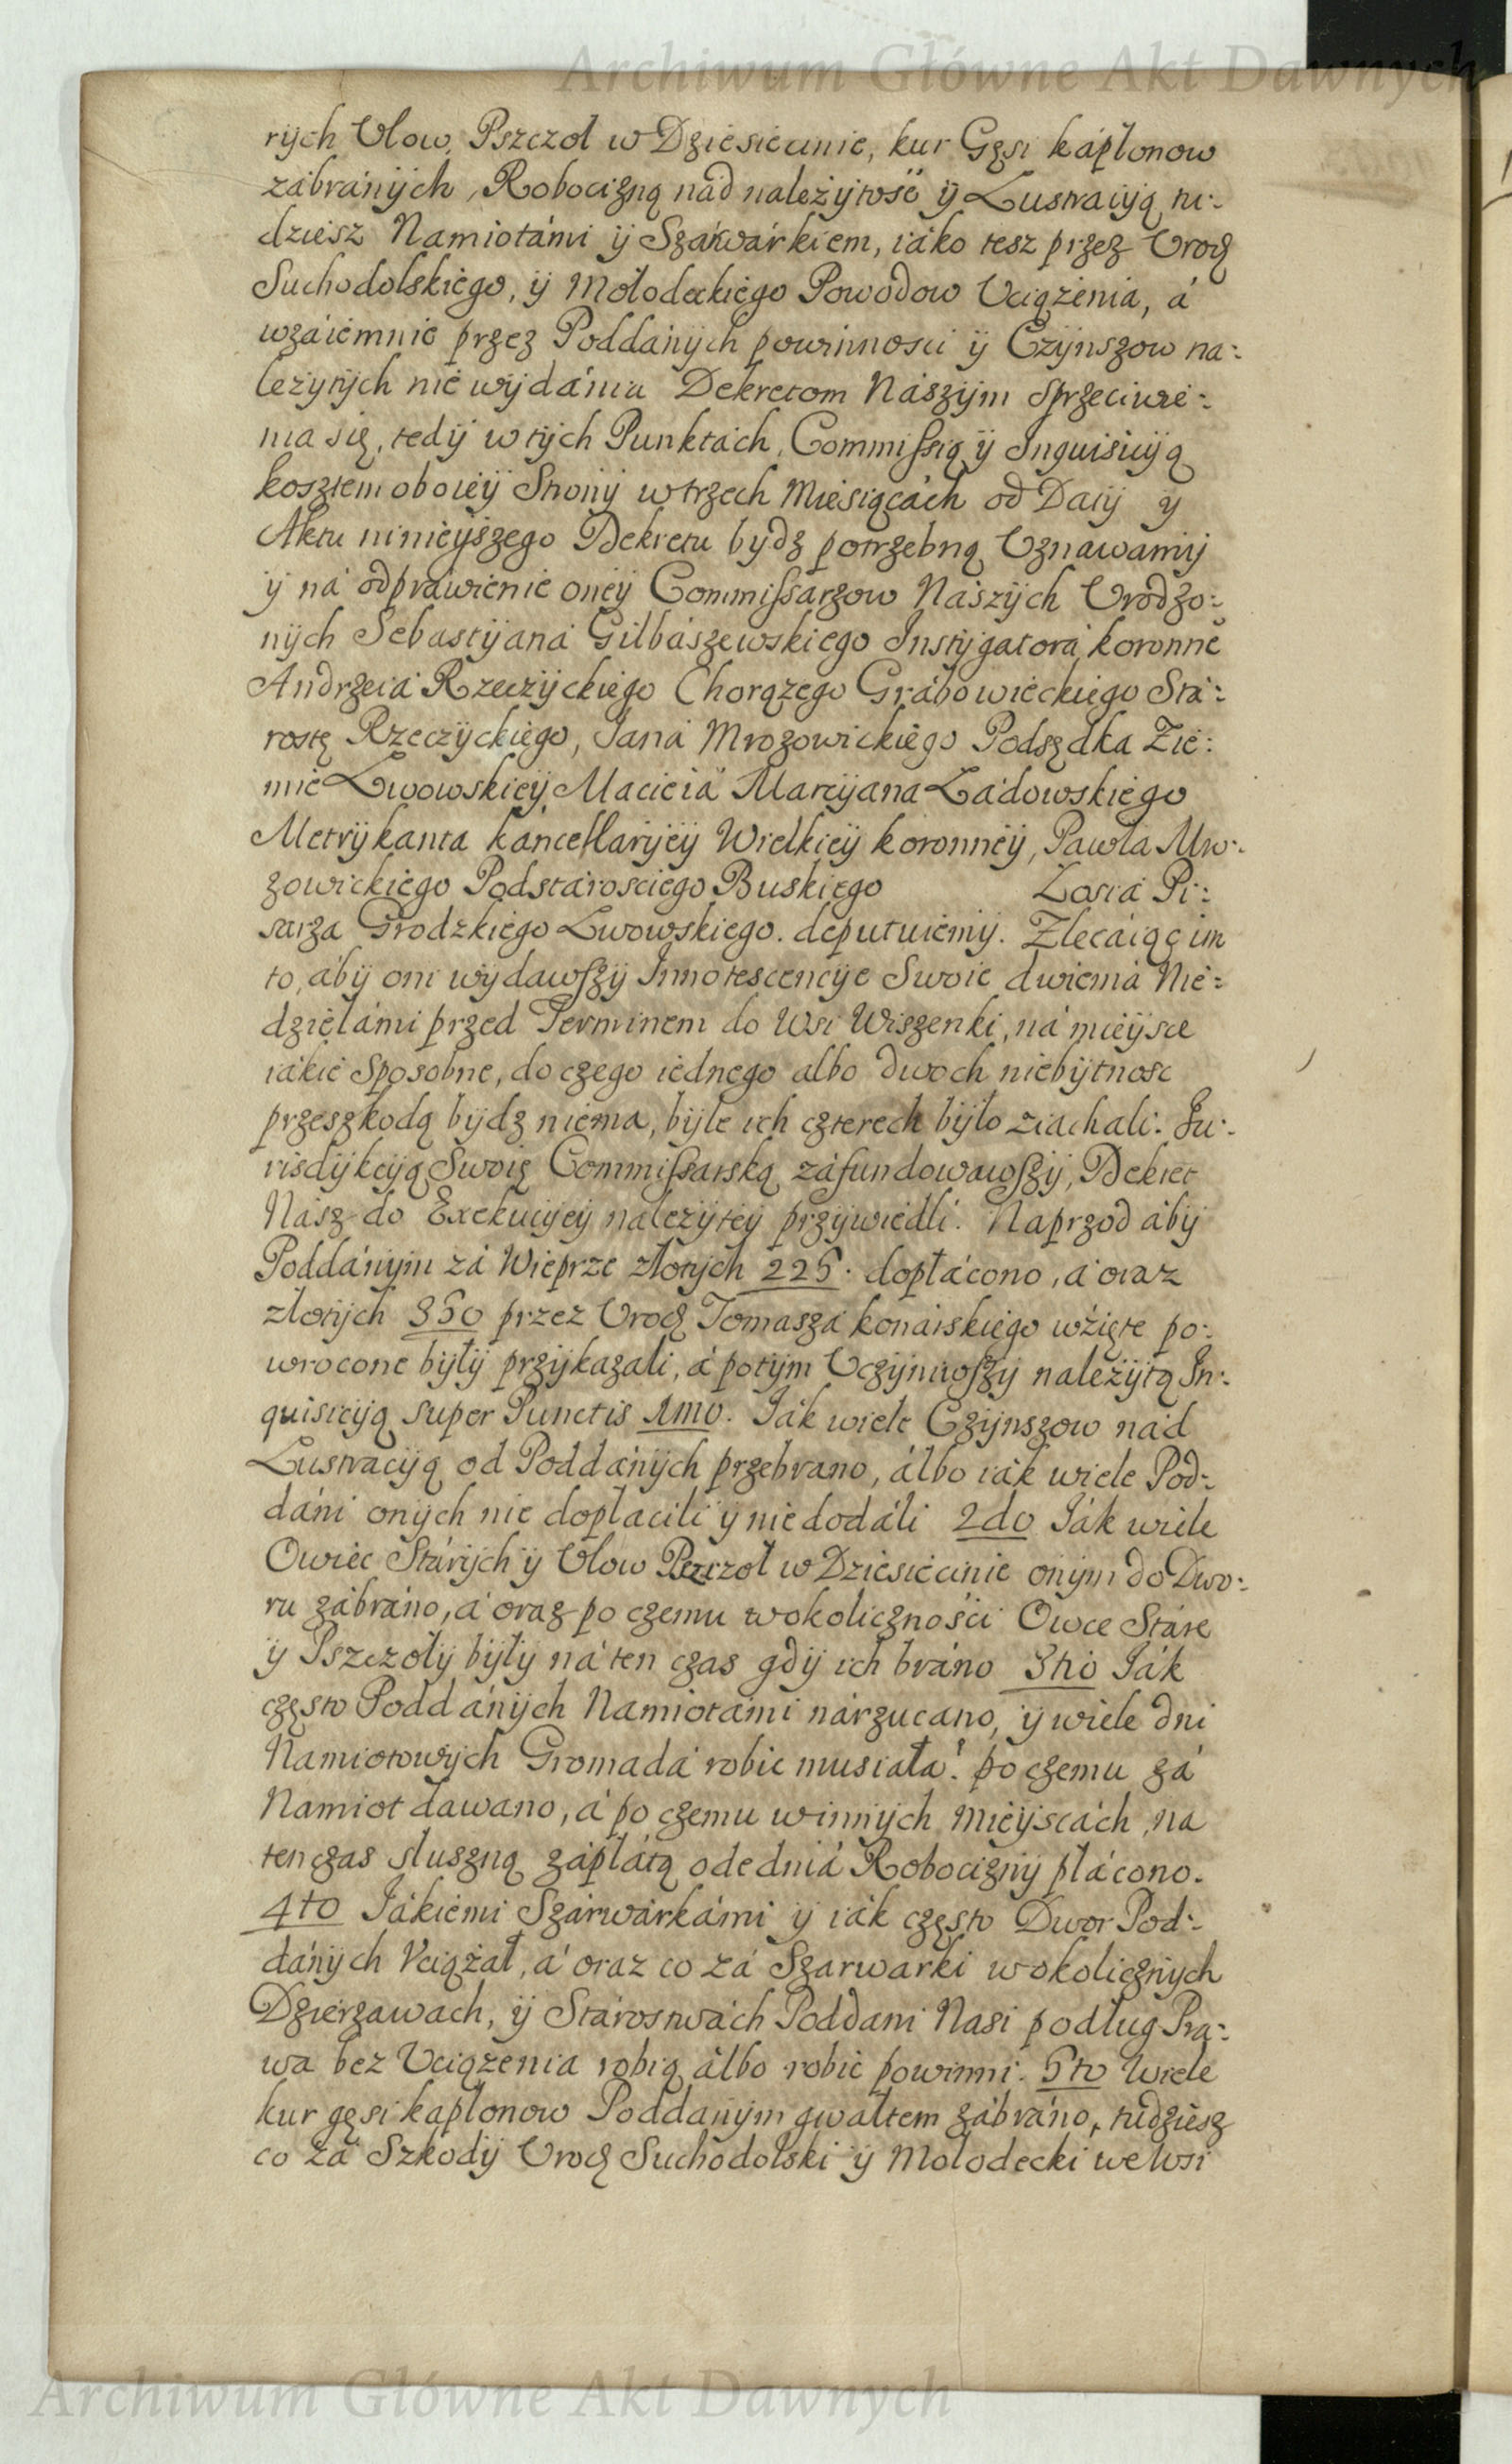 Archiwum Główne Akt Dawnych
rych Ulow, Pszczoł w Dziesiecinie, kur Gęsi káplonow
zábránych, Robocizną nád należytość y Lustracyją tu-:
dziesz Namiotámi y Szárwárkiem, iáko tesz przez Urodz
Suchodolskiego, y Mołodeckiego Powodow Uciążenia, á
wzáiemnie przez Poddánych powinnosci y Czynszow na-:
leżytych nie wydánia Dekretom Nászym Sprzeciwie-:
nia się, tedy w tych Punktách, Commissią y Inquisicyą
kosztem oboiey Strony w trzech Miesiącách od Daty y
Aktu ninieyszego Dekretu bydz potrzebną Uznawamy
y ná odpráwienie oney Commissarzow Nászych Urodzo-:
nych Sebastyaná Gilbászewskiego Instygatorá koronne
Andrzeiá Rzeczyckiego Chorążego Grábowieckiego Stá-:
rostę Rzeczyckiego, Janá Mrozowickiego Podsędka Zie-:
mie Lwowskiey, Macieiá Marcyana Ládowskiego
Metrykanta káncellaryey Wielkiey koronney, Pawla Mro-:
zowickiego Podstárosciego Buskiego Łosiá Pi-:
sarza Grodzkiego Lwowskiego. deputuiemy. Zlecáiąc im
to, áby oni wydawszy Innotescencye Swoie dwiemá Nie-:
dzielámi przed Terminem do Wsi Wiszenki, ná mieysce
iákie Sposobne, do czego iednego albo dwoch niebytnosc
przeszkodą bydz niema, byle ich czterech było ziachali: Ju-:
risdykcyą Swoię Commissarską záfundowawszy, Dekret
Nász do Exekucyey należytey przywiedli. Naprzod áby
Poddánym zá Wieprze złotych 225. dopłácono, á oraz
złotych 350 przez Urodz Tomaszá konáiskiego wżięte po-:
wrocone były przykazali, á potym Uczyniwszy należytą In-:
quisicyą super Punctis 1mo. Ják wiele Czynszow nád
Lustracyją od Poddánych przebrano, álbo iák wiele Pod-:
dáni onych nie doplacili y niedodáli 2do Ják wiele
Owiec Stárych y Ulow Pszczoł w Dziesiecinie onym do Dwo-:
ru zábráno, á oraz po czemu w okoliczności Owce Stáre
y Pszczoły były ná ten czas gdy ich bráno 3tio Ják
często Poddánych Namiotámi nárzucano, y wiele dni
Namiotowych Gromadá robic musiałá: po czemu zá
Namiot dawano, á po czemu w innych Mieyscách, na
tenczas sluszną zápłátą ode dniá Robocizny płácono.
4to Jákiemi Szárwárkámi y iák często Dwor Pod-:
dánych Uciążał, á oraz co zá Szarwarki w okolicznych
Dzierzawach, y Stárostwách Poddani Nasi podług Pra-:
wa bez Uciążenia robią álbo robić powinni. 5to Wiele
kur gęsi kaplonow Poddanym gwałtem zábráno, tudziesz
co zá Szkody Urodz Suchodolski y Mołodecki we Wsi
Archiwum Główne Akt Dawnych